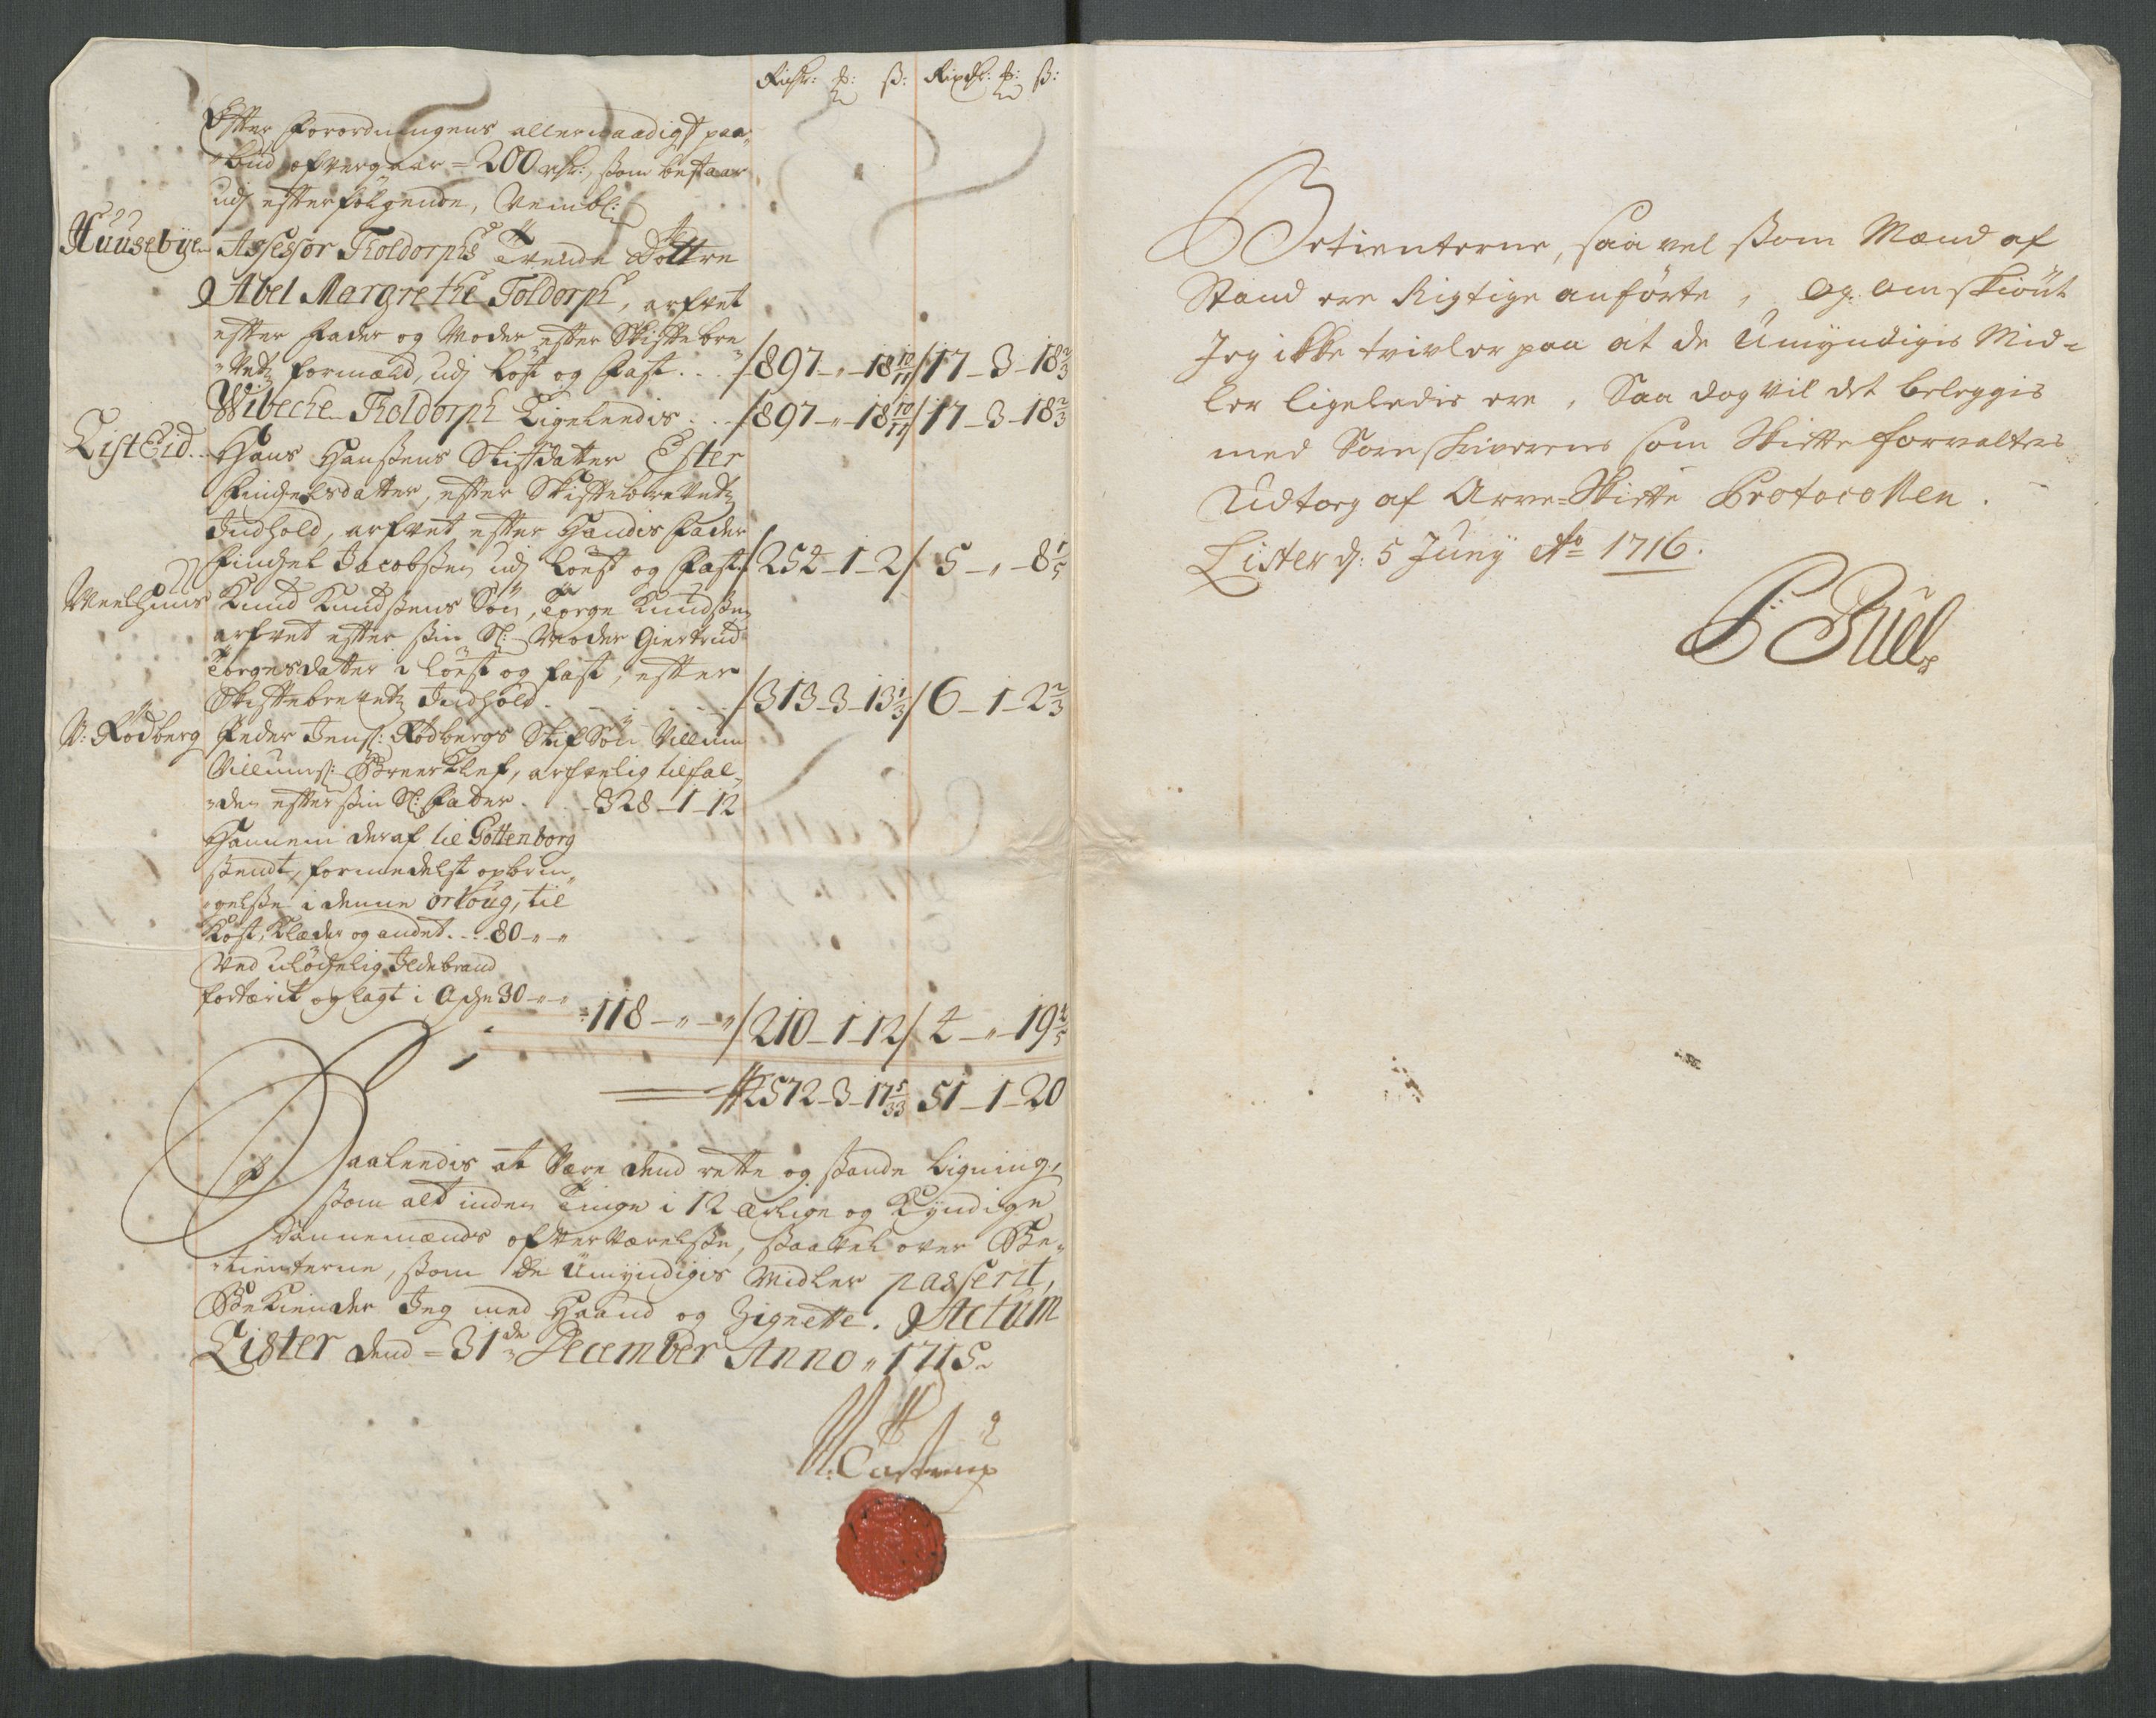 Richr: ₰: ß: Rixdr: ₰: ß:
Efter Forordningens allernaadigst paa-
bud ofvergaar = 200 rdr:, som bestaar
udj efterfølgende, Nembl:
Huusebye Assessor Tholdorphs Tvende Døttre
Abel Margrethe Toldorph, arfvet
efter Fader og Moder efter Skiftebre-
vetz formeld, udj Løst og Fast . . . 897 - „ - 18 10/11 / 17 - 3 - 18 2/3
Wibeche Tholdorph Ligeleedis . . 897 - „ - 18 10/11 / 17 - 3 - 18 2/3
List Eid . Hans Hanßens Stifdatter Ester
Findzelsdatter, efter Skiftebrevetz
Indhold, arfvet efter Hendis Fader
Findzel Jacobßen udj Løst og Fast / 254 - 1 - 2 / 5 - „ - 8 1/5
Meelhuus Knud Knudßens Søn, Torge Knudßen
arfvet efter ßin Sl: Moder Giertrud
Torgesdatter i Løst og fast, efter
Skiftebrevetz Indhold . . . / 313 - 3 - 13 1/3 / 6 - 1 - 2 2/3
N: Rødberg Peder Jenß: Rødbergs StifSøn Villum
Villumß: Breertlef, arfvelig tilfal-
den efter ßin Sl: Fader . . . 328 - 1 - 12
Hannem deraf til Gottenborg
ßendt, formedelst opbrin-
gelße i denne orloug, til
Kost, Klæder og andet . . . 80 - „ - „
Ved uløchelig Ildebrand
fortærit og lagt i Aske 30 - „ - „
118 - „ - „ / 210 - 1 - 12 / 4 - „ - 19 4/5
2572 - 3 - 17 5/33 51 - 1 - 20
Saaleedis at være dend rette og ßande Ligning,
ßom alt inden Tinge i 12 Ærlige og Kyndige
Dannemænds ofverværelße, ßaavel over Be-
tienterne, ßom de Umyndigis Midler passerit,
Bekiender Jeg med Haand og Zignette. Actum
Lister dend = 31de December Anno „ 1715
Castrup
Betienterne, saa vel ßom Mænd af
Stand ere Rigtige anførte, og omskiønt
Jeg ikke tvivler paa at de Umyndigis Mid-
ler ligeledis ere, Saa dog vil det beleggis
med Sorenskriverens som Skifte forvalters
Udtog af Arve-Skifte Protocollen.
Lister d: 5 Junij Ao 1716.
P Buel